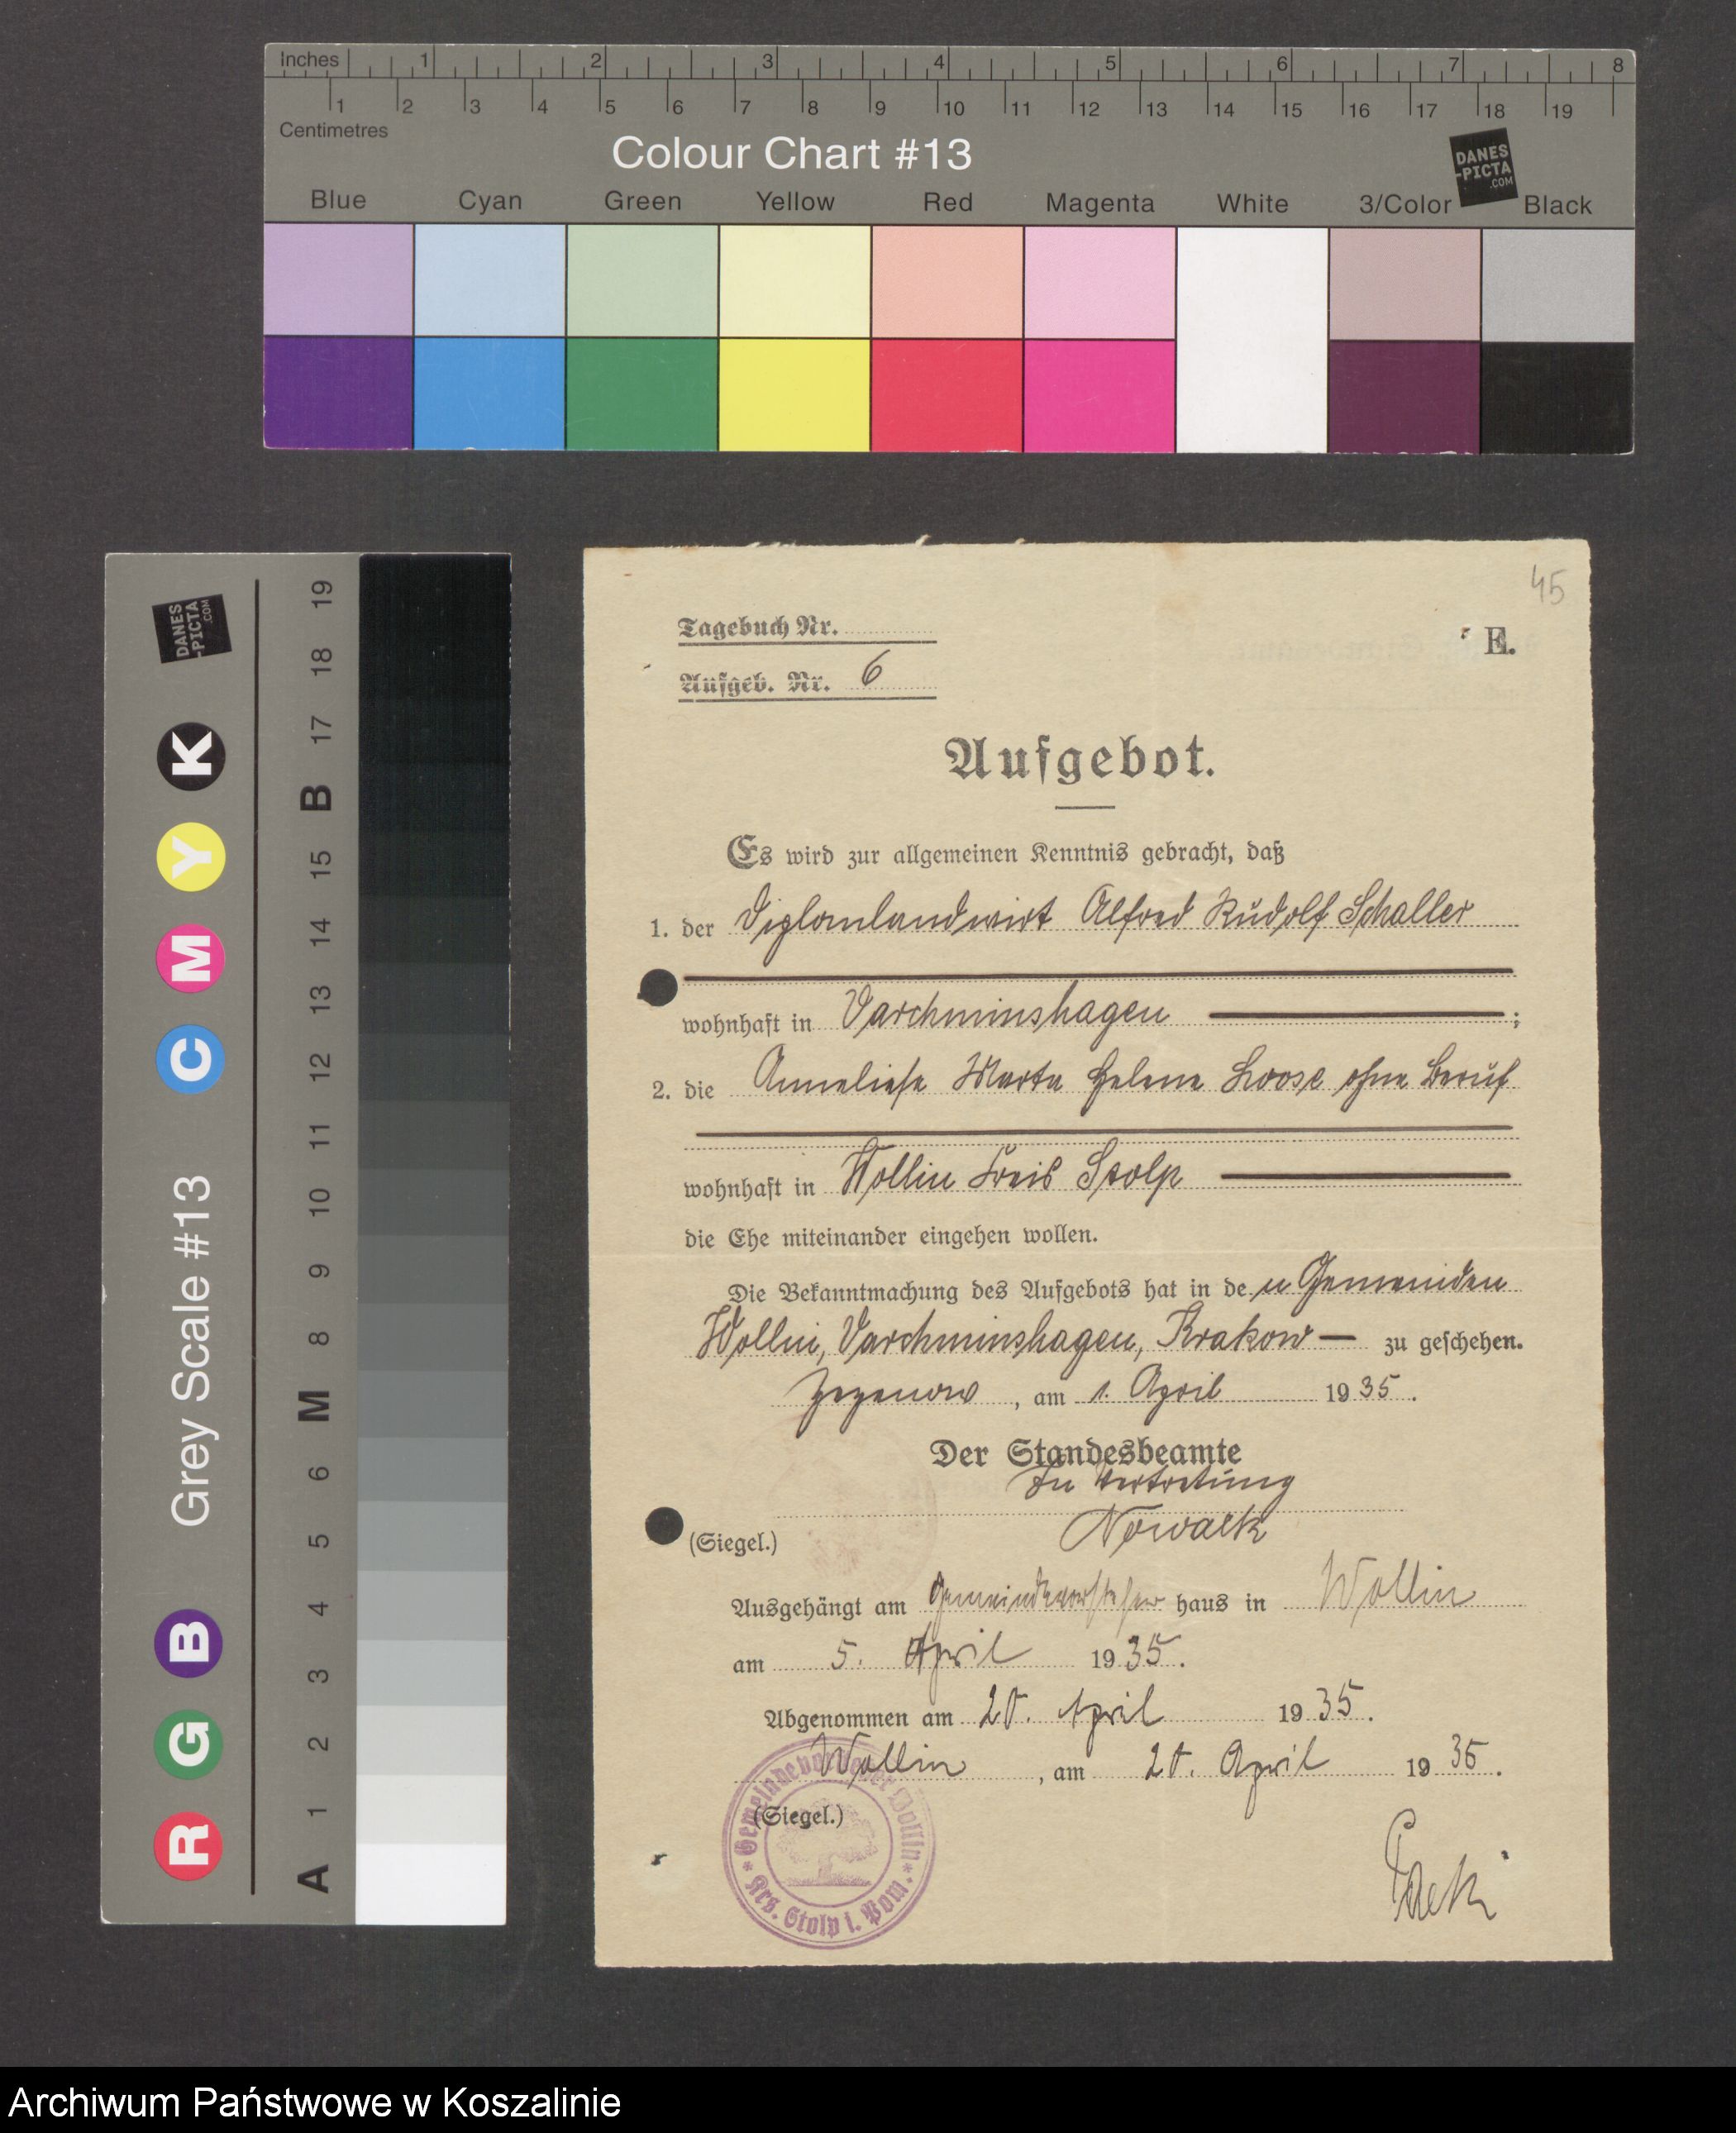 Inches 1 2 3 4 5 6 7 8
1 2 3 4 5 6 7 8 9 10 11 12 13 14 15 16 17 18 19
Centimetres
Colour Chart #13
DANES
-PICTA
.COM
Blue Cyan Green Yellow Red Magenta White 3/Color Black
Grey Scale #13
R G B C M Y K
DANES
-PICTA
.COM
A 1 2 3 4 5 6 M 8 9 10 11 12 13 14 15 B 17 18 19
45
Tagebuch Nr.
E.
Aufgeb. Nr. 6
Aufgebot.
Es wird zur allgemeinen Kenntnis gebracht, daß
1. der Diplomlandwirt Alfred Rudolf Schaller
wohnhaft in Varchminshagen ;
2. die Anneliese Marta Helene Loose ohne Beruf
wohnhaft in Wollin Kreis Stolp
die Ehe miteinander eingehen wollen.
Die Bekanntmachung des Aufgebots hat in de n Gemeinden
Wollin, Varchminshagen, Krakow — zu geschehen.
Zezenow, am 1. April 1935.
Der Standesbeamte
In Vertretung
Nowack
(Siegel.)
Ausgehängt am Gemeindevorsteher haus in Wollin
am 5. April 1935.
Abgenommen am 20. April 1935.
Wollin, am 20. April 1935.
(Siegel.)
Gemeindevorsteher Wollin
* Krs. Stolp i. Pom. *
Archiwum Państwowe w Koszalinie